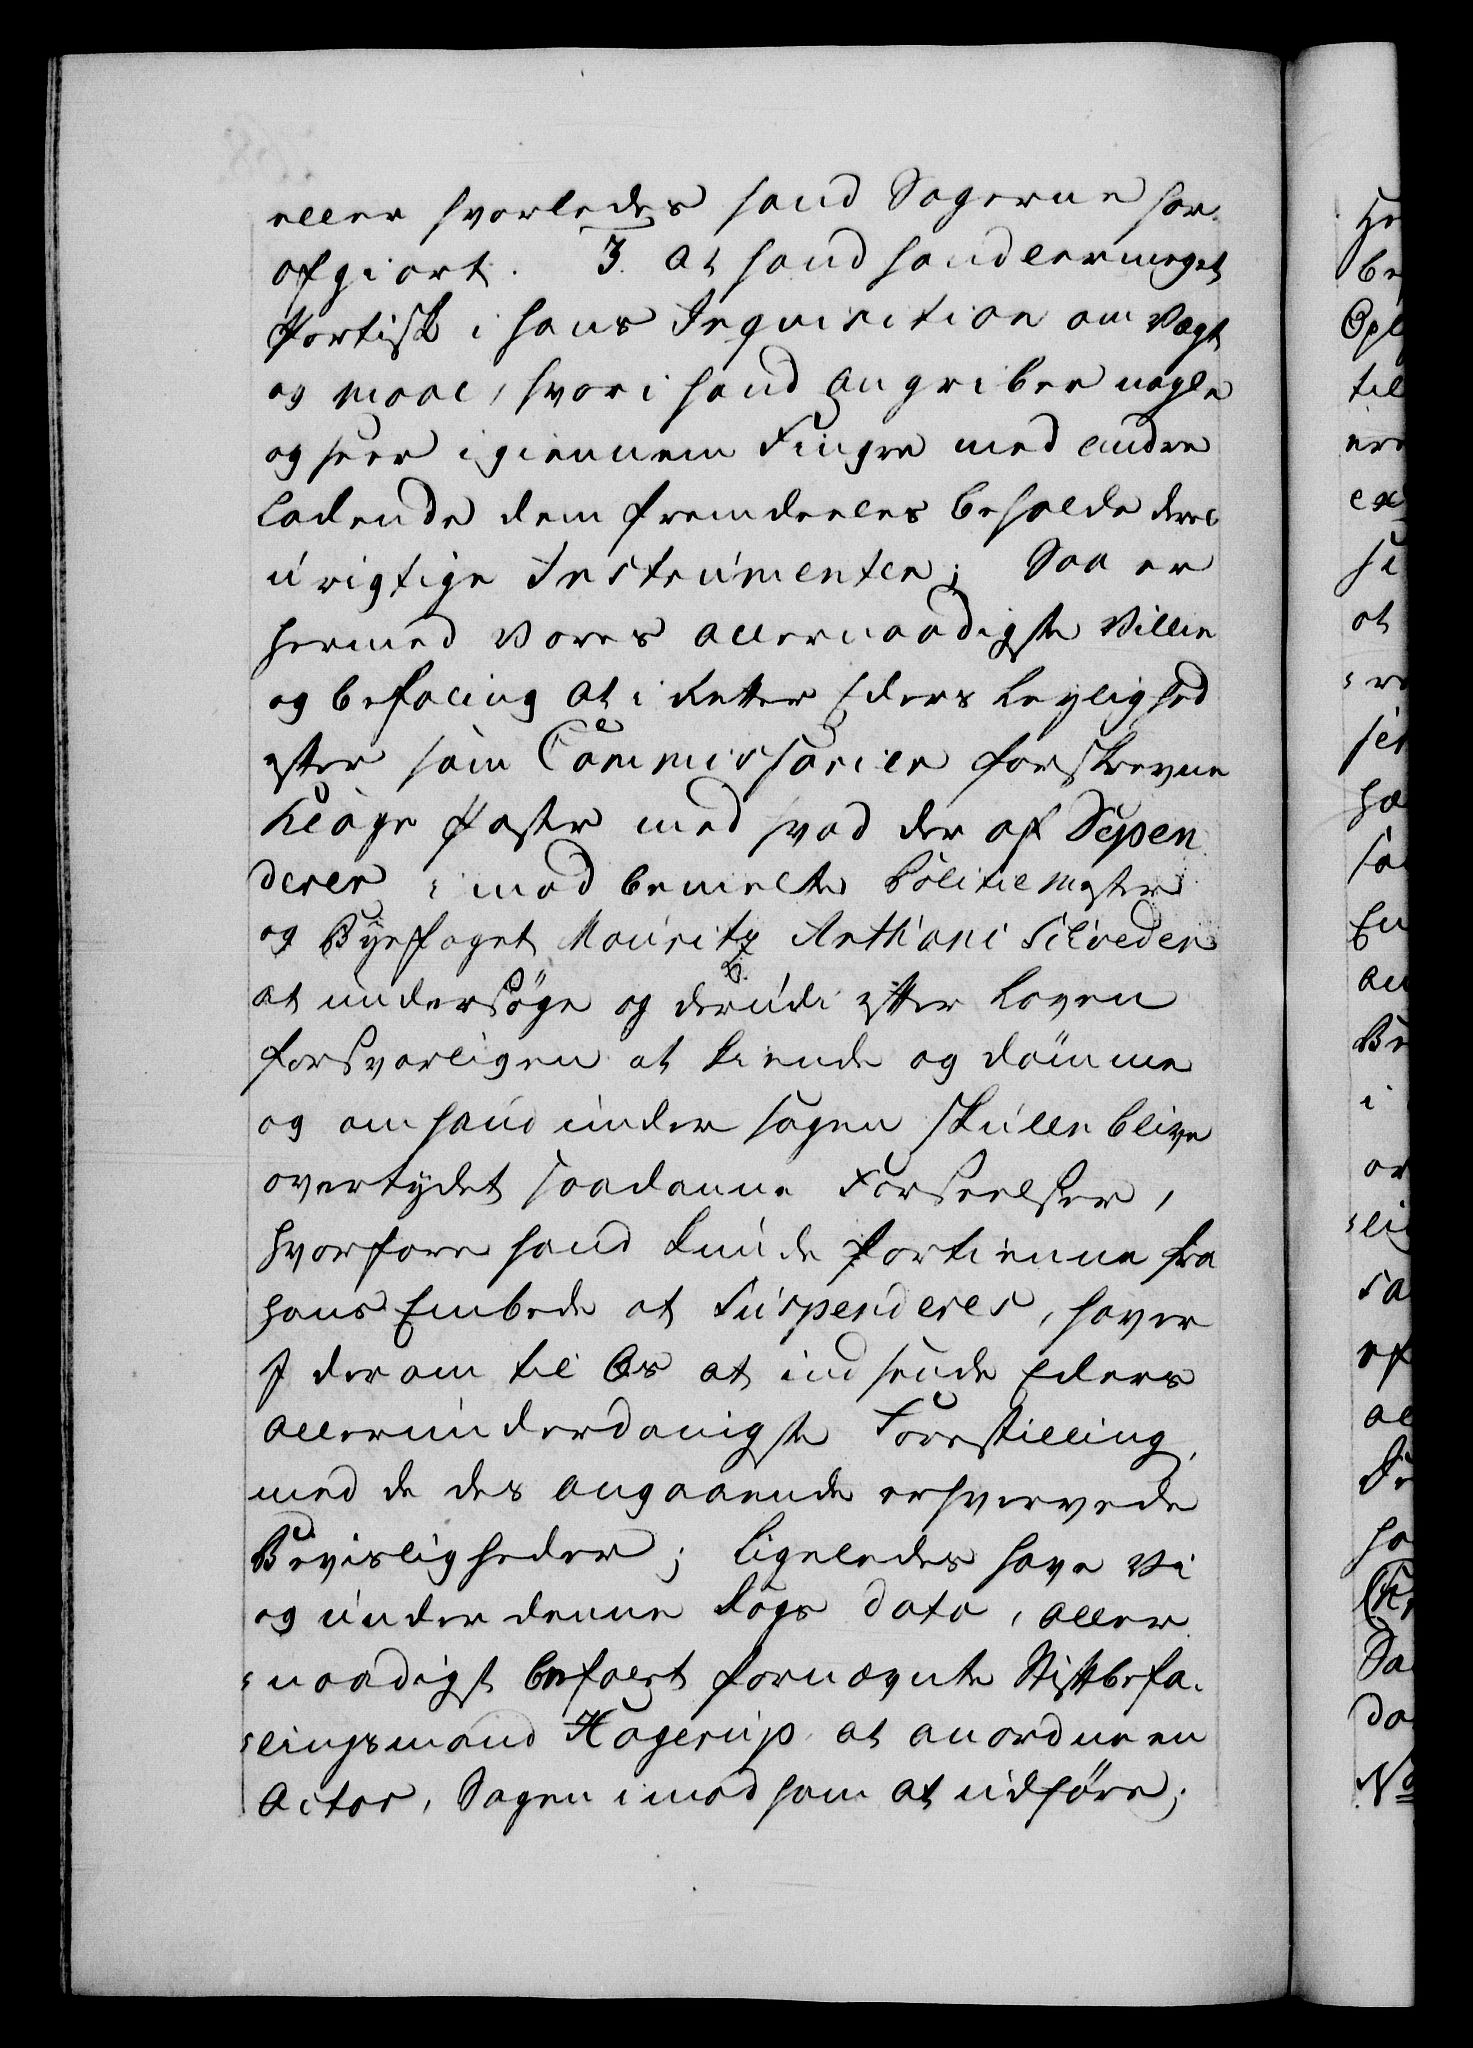 eller hvorledes hand Sagerne har
afgiort. 3. At hand handler meget
Partisk i hans Inquisition om Vægt
og maal, hvori hand angriber nogle
og seer igiennem Fingre med andre
ladende dem fremdeeles beholde deres
urigtige Instrumenter; Saa er
hermed Vores allernaadigste Villie
og befaling at i retter Eders Leylighed
efter som Commissarier forskrevne
Klage Poster med hvad der af Depen
derer imod bemelte Politiemester
og Byefoget Mouritz Anthoni
at undersøge og derudi efter Loven
forsvarligen at kiende og dømme
og om hand under sagen skulle blive
overtydet saadanne Forseelser,
hvorfore hand kunde fortienne fra
hans Embede at Suspenderes, haver
I derom til Os at indsende Eders
allerunderdanigste Forestilling,
med de des angaaende erhvervede
Bevisligheder; ligeledes have Vi
og under denne Dags dato, aller
-naadigst befalet fornævnte Stiftbefa-
-lingsmand Hagerup at anordne en
Actor, Sagen imod ham at udføre;